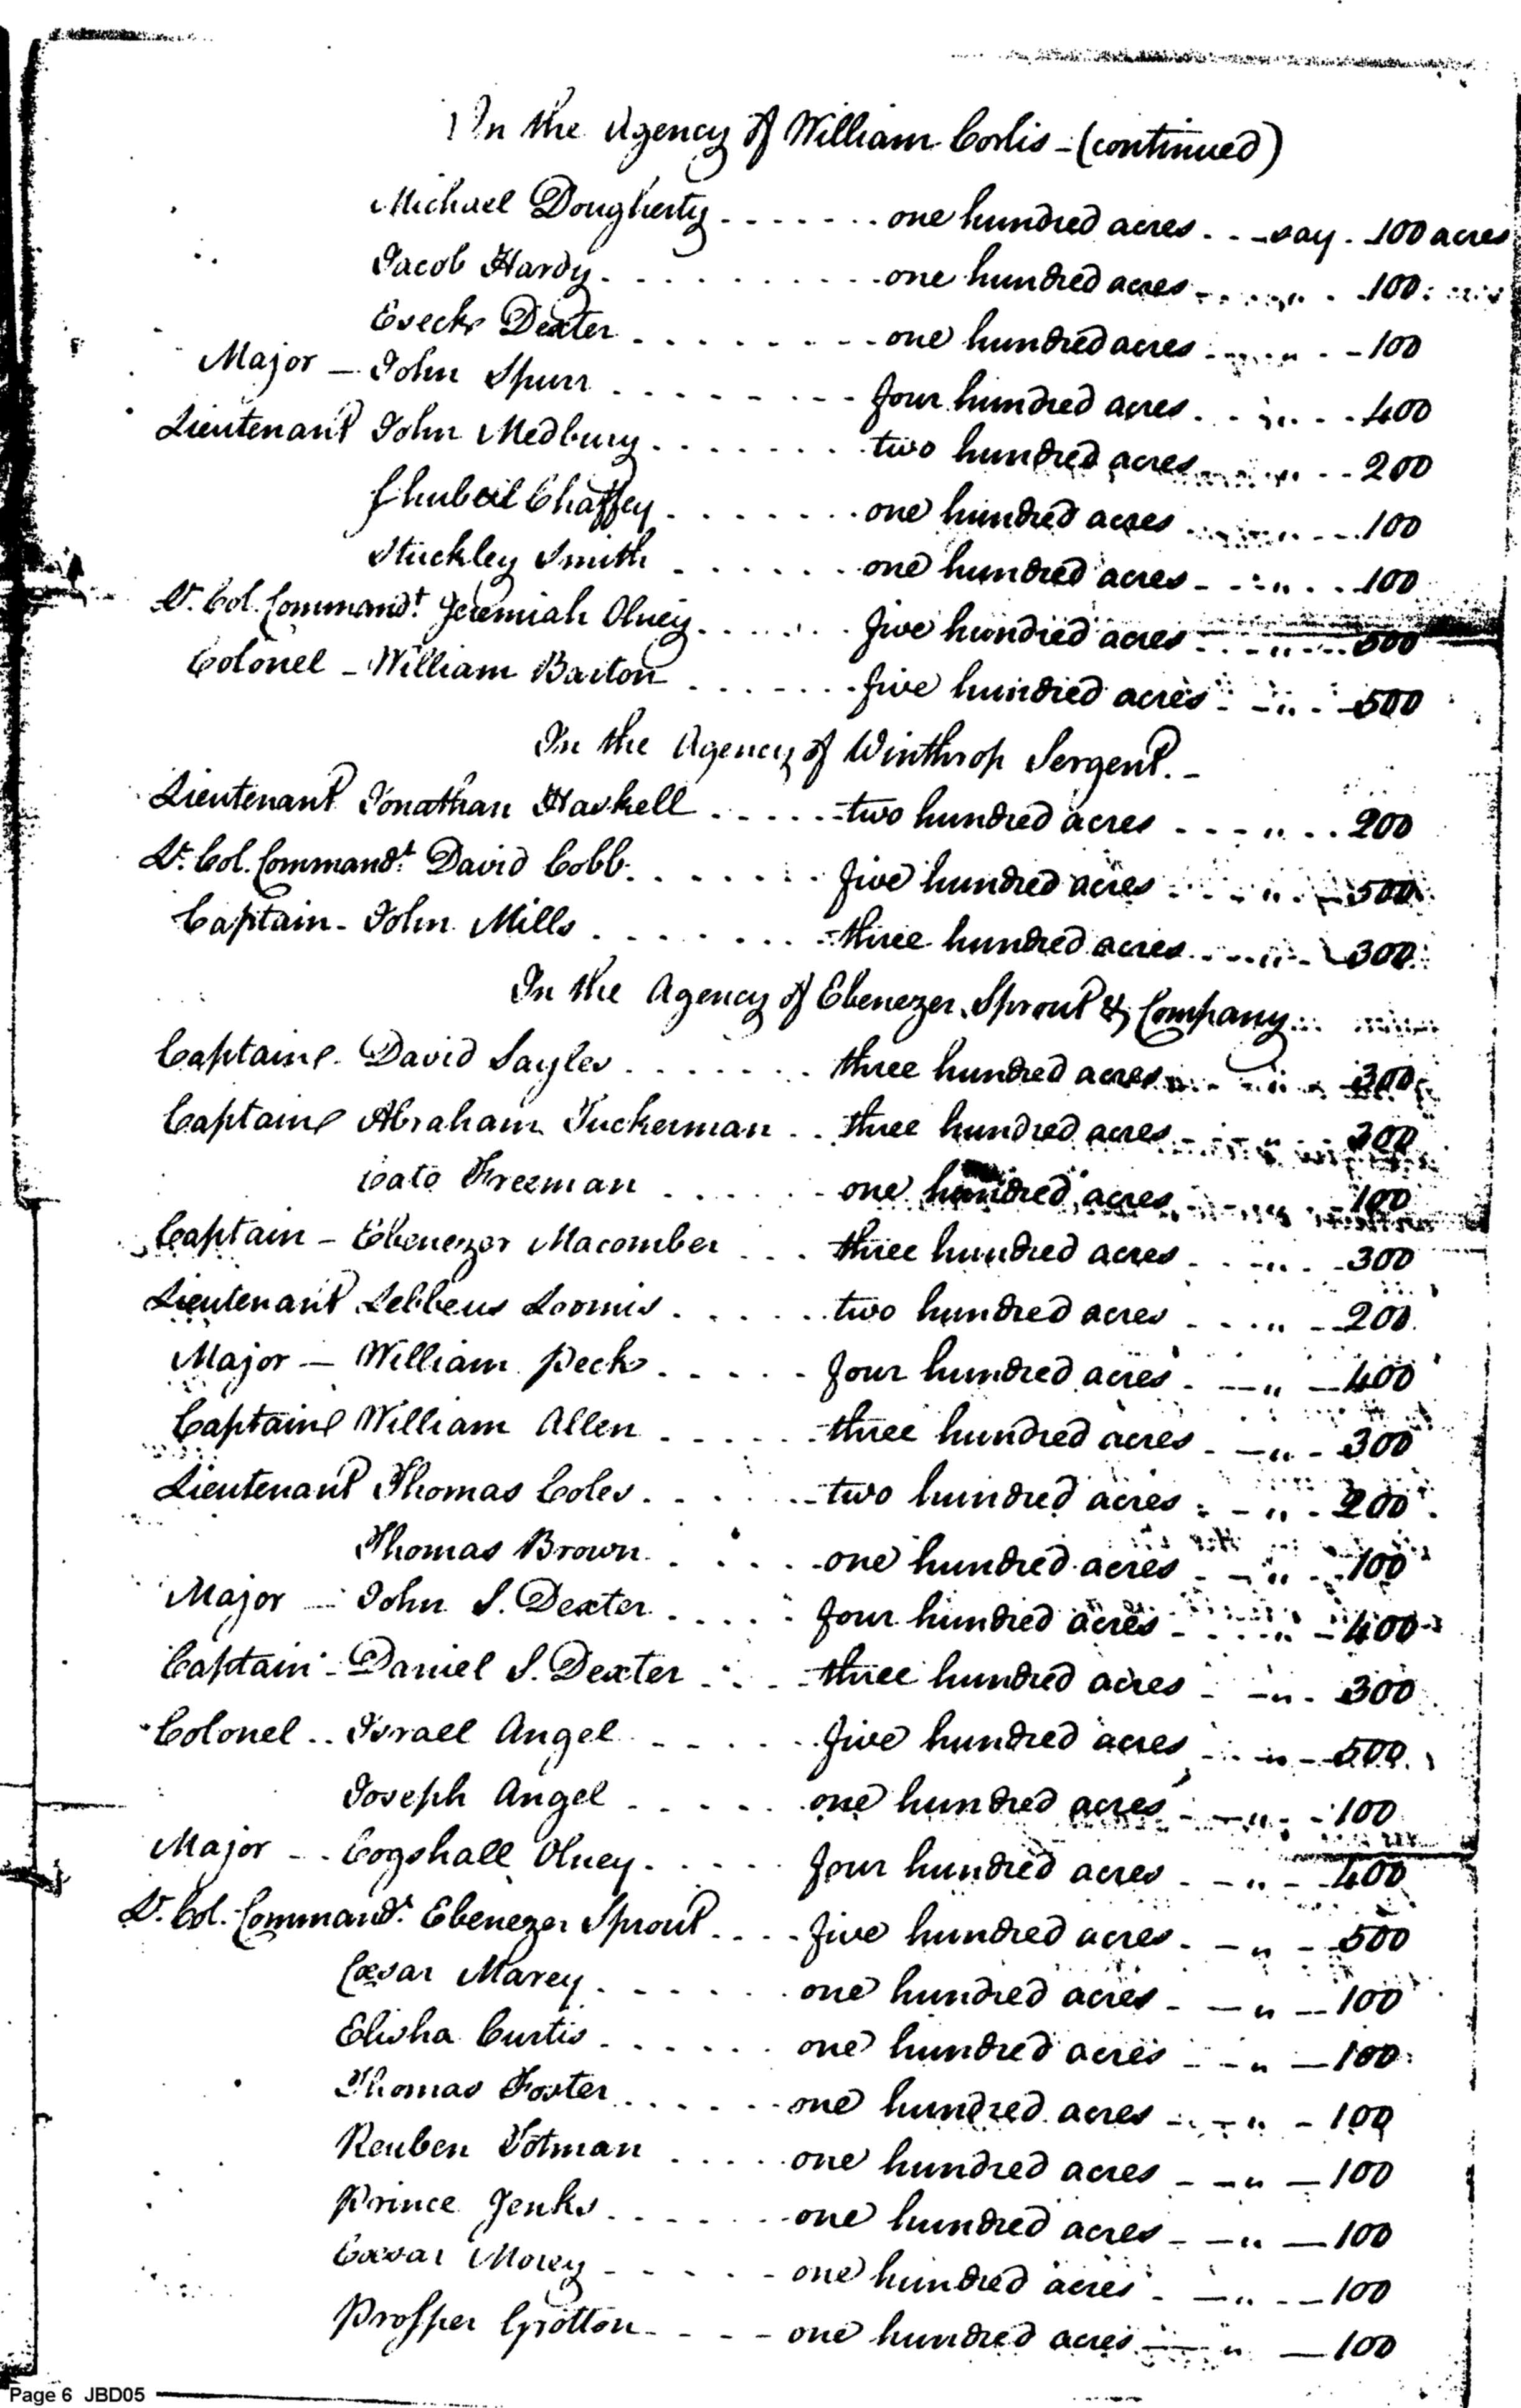 In the Agency of William Corlis - (continued)
Michael Dougherty - - - - - - - one hundred acres - - - say - 100 acres
Jacob Hardy - - - - - - - - - one hundred acres - - - „ - 100
Eseck Dexter - - - - - - - - one hundred acres - - - „ - - 100
Major - John Spurr - - - - - - - - four hundred acres - - „ - - 400
Lieutenant John Medbury - - - - - - - two hundred acres - - „ - - 200
Chaffey - - - - - - - one hundred acres - - „ - - 100
Stuckley Smith - - - - - - one hundred acres - - „ - - 100
Lt. Col. Commandt. Jeremiah Olney - - - - - five hundred acres - - „ - - 500
Colonel - William Barton - - - - - - five hundred acres - - „ - - 500
In the Agency of Winthrop Sergent. -
Lieutenant Jonathan Haskell - - - - - two hundred acres - - - „ - - 200
Lt. Col. Commandt. David Cobb - - - - - - - five hundred acres - - - „ - - 500
Captain - John Mills - - - - - - - three hundred acres - - - „ - 300
In the Agency of Ebenezer Sprout & Company
Captain David Sayles - - - - - - - three hundred acres - - „ - 300
Captain Abraham Tuckerman - - three hundred acres - - „ - - 300
Cato Freeman - - - - - - one hundred acres - - „ - - 100
Captain - Ebenezer Macomber - - - three hundred acres - - „ - - 300
Lieutenant Lebbeus Loomis - - - - - - two hundred acres - - - „ - 200
Major - William Peck - - - - - four hundred acres - - „ - 400
Captain William Allen - - - - - - three hundred acres - - „ - 300
Lieutenant Thomas Coles - - - - - - two hundred acres - - „ - 200
Thomas Brown - - - - - one hundred acres - - „ - 100
Major - John S. Dexter - - - - - four hundred acres - - „ - 400
Captain - Daniel S. Dexter - - - - three hundred acres - - „ - 300
Colonel - - Israel Angel - - - - - - five hundred acres - - „ - 500
Joseph Angel - - - - - one hundred acres - - „ - 100
Major - - Cogshall Olney - - - - - four hundred acres - - „ - - 400
Lt. Col. Commandt. Ebenezer Sprout - - - - five hundred acres - - „ - 500
Cæsar Marey - - - - - - one hundred acres - - „ - 100
Elisha Curtis - - - - - - one hundred acres - - „ - 100
Thomas Foster - - - - - - one hundred acres - - „ - 100
Reuben Totman - - - - - one hundred acres - - „ - 100
Prince Jenks - - - - - - one hundred acres - - „ - 100
Cæsar Morey - - - - - one hundred acres - - „ - - 100
Prosper Grotton - - - - one hundred acres - „ - 100
Page 6 JBD05